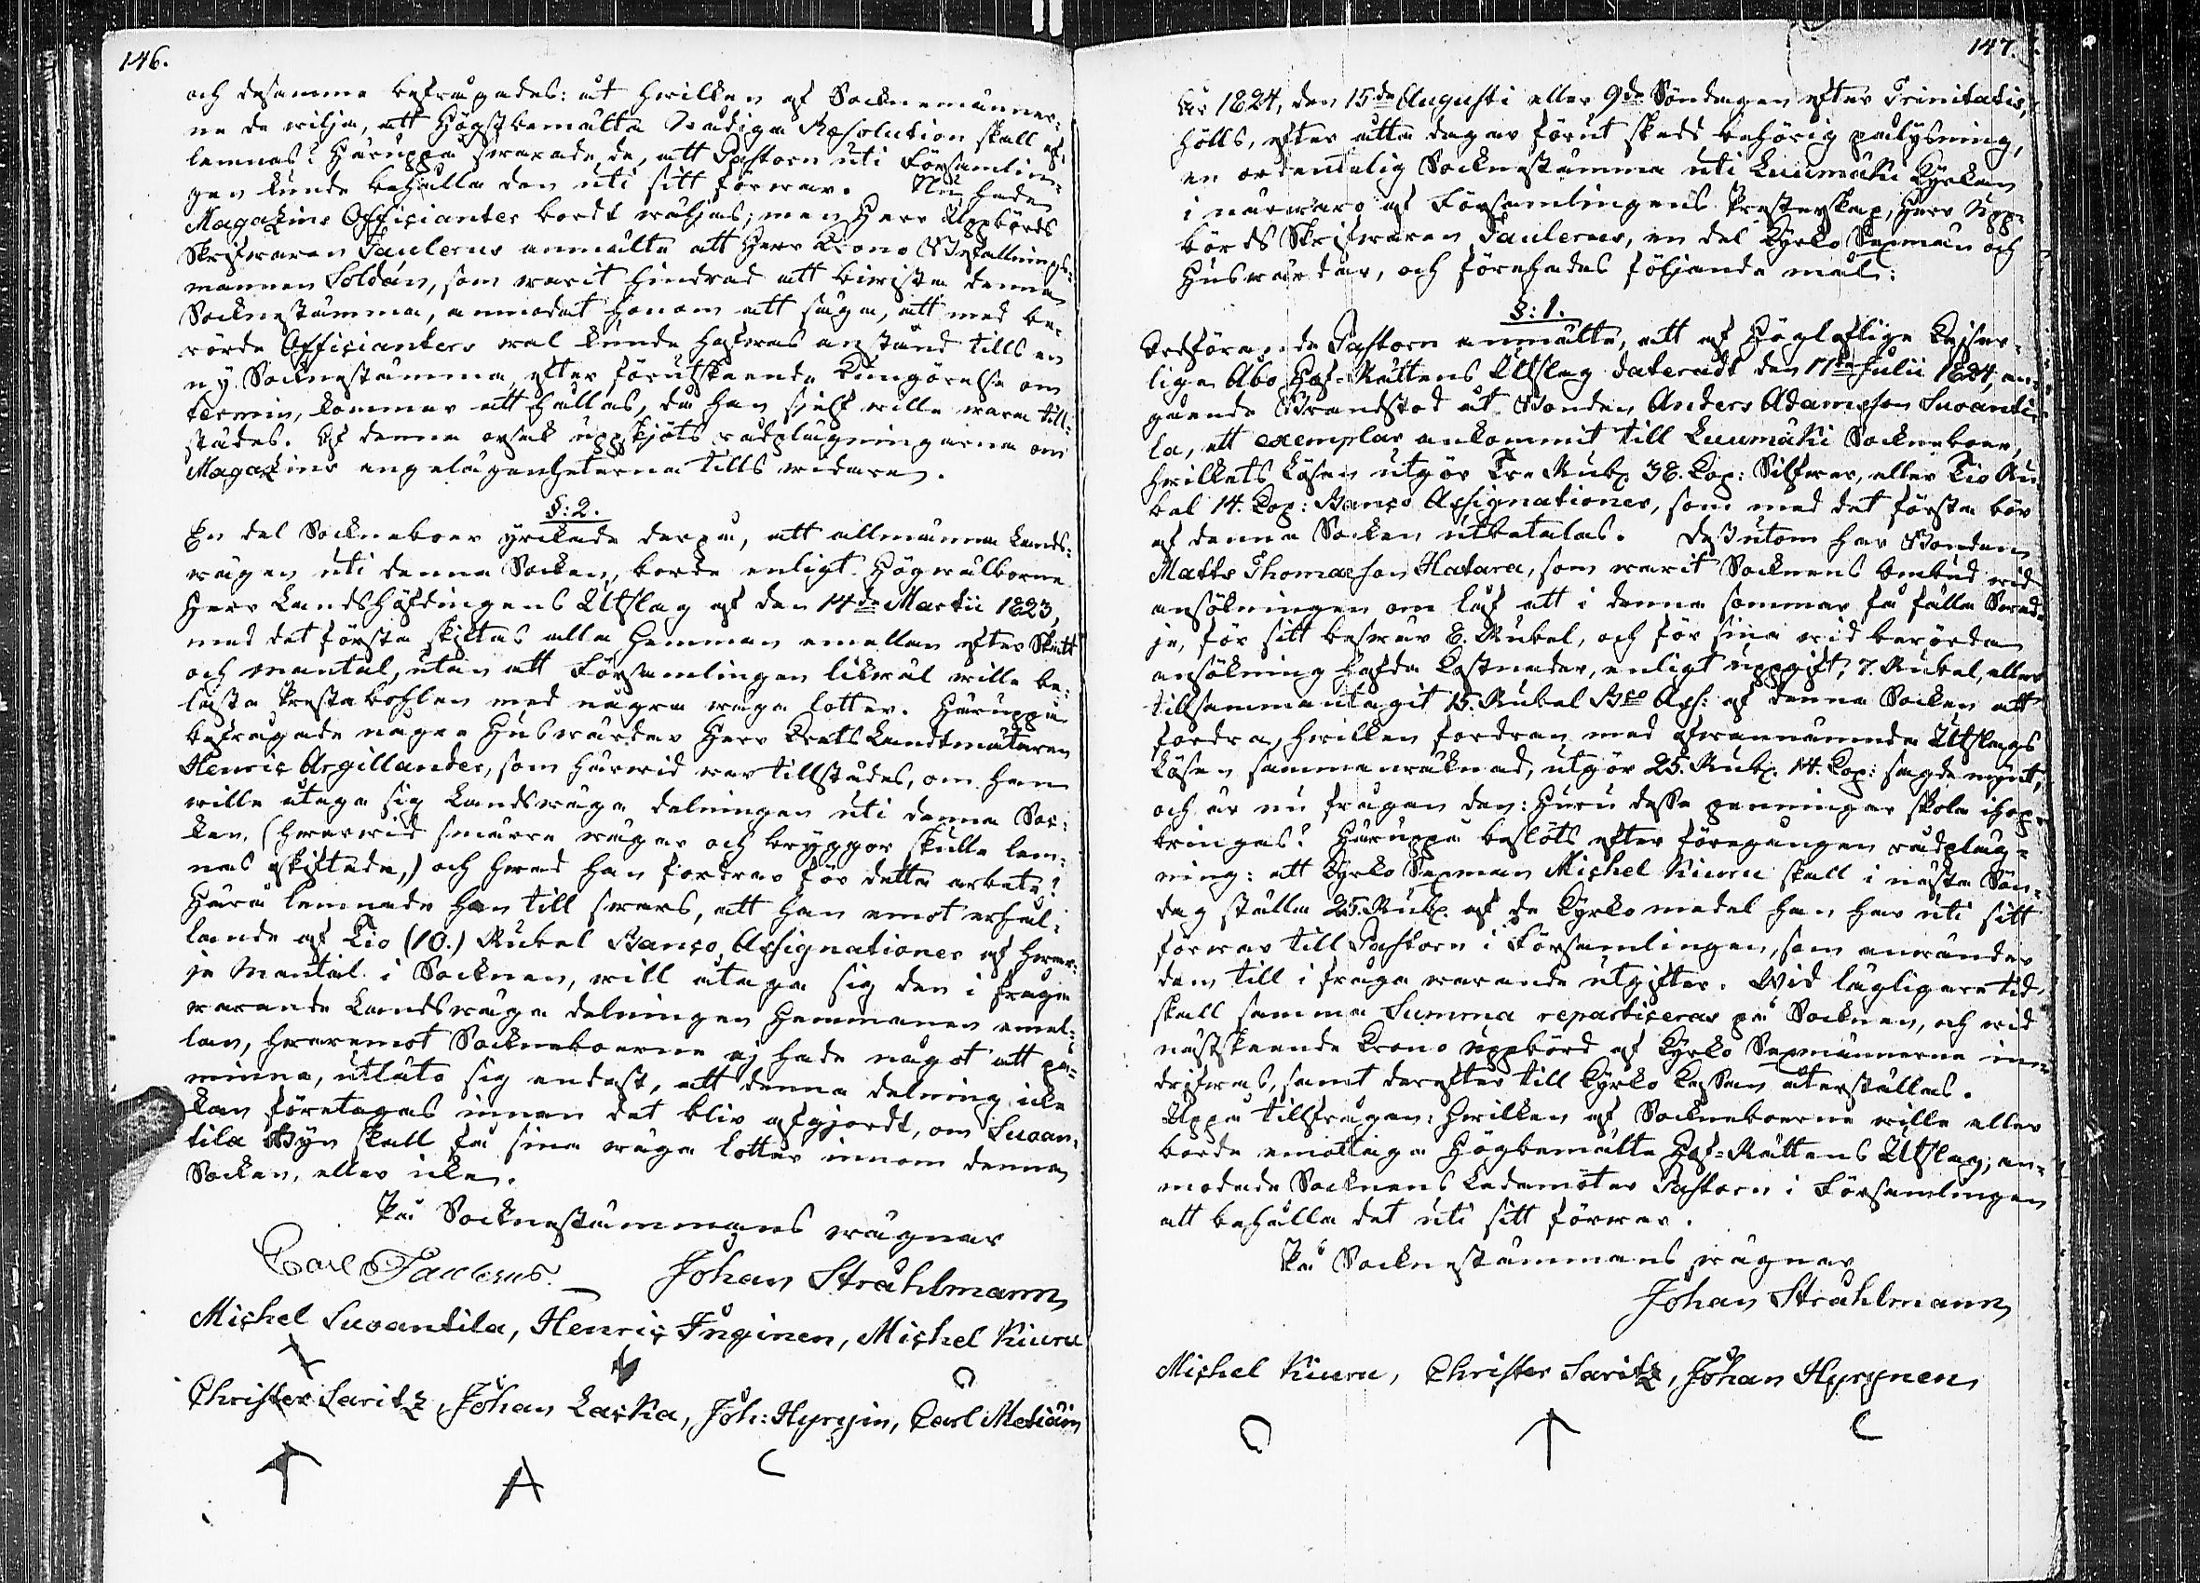 146.
och desamma befrågades: åt hwilken af Socknemänner-
ne de wilja, att Högstbemälta Nådiga Resolution skall af-
lemnas? Häruppå swarade de, att Pastorn uti Församlin-
gen kunde behålla den uti sitt förwar. Nu hade
Magazins Officianter bordt wäljas; men Herr Uppbörds
Skrifwaren Taulerus anmälte att Herr Krono Befallnings-
mannen Soldán, som warit hindrad att biwista denna
Socknestämma, anmodat honom att säga, att med be-
rörde Officianters wal kunde hafwas anstånd tills en
ny Socknestämma, efter förutskeende kungörelse om
termin, kommer att hållas, då han sjelf wille wara till-
städes. Af denna orsak uppskjöts rådplägningarna om
Magazins angelägenheterna tills widare.
§: 2.
En del Sockneboer yrckade derpå, att allmänna Lands-
wägen uti denna Socken, borde enligt Högwälborne
Herr Landshöfdingens Utslag af den 14de Martii 1823,
med det första skiftas alla Hemman emellan efter Skatt
och mantal, utan att Församlingen likwäl wille be-
lasta Prestabohlen med några wäga lotter. Häruppå
befrågade några Huswärdar Herr Crets Landtmätaren
Henric Argillander, som härwid war tillstädes, om han
wille åtaga sig Landswäga delningen uti denna Soc-
ken, (hwarwid smärre wägar och bryggor skulle lem-
nas oskiftade,) och hwad han fordrar för detta arbete?
Härå lemnade han till swars, att han emot erhål-
lande af Tio (10.) Rubel Banco Assignationer af hwar-
je Mantal i Socknen, will åtaga sig den i fråga
warande Landswäga delningen Hemmanen emel-
lan, hwaremot Sockneboerne ej hade något att på-
minna, utlåto sig endast, att denna delning icke
kan företagas innan det blir afgjordt, om Suoan-
tila By skall få sina wäga lotter innom denna
Socken, eller icke.
På Socknestämmans wägnar
Carl Taulerus. Johan Stråhlmann
Michel Suoantila, Henric Inginen, Michel Kiuru
Christer Saritz, Johan Laska, Joh: Hyryin, Carl
147.
År 1824, den 15de Augusti eller 9de Söndagen efter Trinitatis,
hölls, efter åtta dagar förut skedd behörig pålysning,
en ordentelig Socknestämma uti Luumäki Kyrkan
i närwaro af Församlingens Presterskap, Herr Upp-
börds Skrifwaren Taulerus, en del Kyrko Sexmän och
Huswärdar, och förehades följande mål:
§: 1.
Ordförande Pastorn anmälte, att af Höglofliga Kejser-
liga Åbo Hof-Rättens Utslag dateradt den 17de Julii 1824, an-
gående Brandstod åt Bonden Anders Adamsson Suoanti-
la, ett exemplar ankommit till Luumäki Sockneboer,
hwilkets Lösen utgör Tre Rub. 38. Kop: Silfwer, eller Tio Ru-
bel 14. Kop: Banco Assignationer, som med det första bör
af denna Socken utbetalas. Dessutom har Bonden
Matts Thomasson Hatara, som warit Socknens Ombud wid
ansökningen om lof att i denna sommar få fälla Swed-
je, för sitt beswär 8. Rubel, och för sina wid berörda
ansökning hafda kostnader, enligt uppgift, 7. Rubel, eller
tillsammantagit 15. Rubel Bco Ass: af denna Socken att
fordra, hwilken fordran med ofwannämnda Utslags
Lösen sammanräknad, utgör 25. Rub. 14. Kop: sagde mynt,
och är nu frågan den: Huru dessa penningar skola ihop-
bringas? Häruppå beslöts efter föregången rådpläg-
ning: att Kyrko Sexman Michel Kiuru skall i nästa Sön-
dag ställa 25. Rub. af de Kyrko medel han har uti sitt
förwar till Pastorn i Församlingen, som använder
dem till i fråga warande utgifter. Wid lägligare tid
skall samma Summa repartiseras på Socknen, och wid
nästskeende Krono Uppbörd af Kyrko Sexmännerne in-
drifwas, samt derefter till Kyrko Cassan återställas.
Uppå tillfrågan: hwilken af Sockneboerne wille eller
borde emottaga Högbemälte Hof-Rättens Utslag; an-
modade Socknens Ledamöter Pastorn i Församlingen
att behålla det uti sitt förwar.
På Socknestämmans wägnar
Johan Stråhlmann
Michel Kiuru, Christer Saritz, Johan Hyrynen,